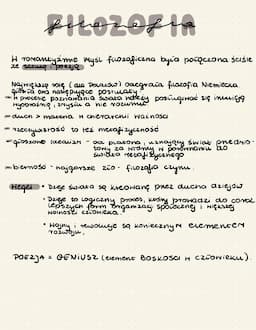 FILOZOFIA
filozofia
W romantyzmie myśl filozoficzna była połączona ściśle
ze sztuką i poezją
Największą rolę (dla Polaków) odegrała filozofia niemiecka
głosiła ona następujące postulaty:
w procesie poznawania świata należy posługiwać się intuicją
wyobraźnią, zmysłami a nie rozumem
duch > materia w hierarchii ważności
rzeczywistość to też metafizyczność
głoszone idealizm - dla pisania, uznający świat przedmio-
towy za wtórny w porównaniu do
świata metafizycznego
bierność - najgorsze zło - filozofia czynu
Hegel
• Dzieje świata są kreowane przez ducha dziejów
• Dzieje to logiczny proces, który prowadzi do coraz
lepszych form organizacji społecznej i większej
wolności człowieka.
• Wojny i rewolucje są koniecznym elementem
rozwoju.
POEZJA = GENIUSZ (element boskości w człowieku).